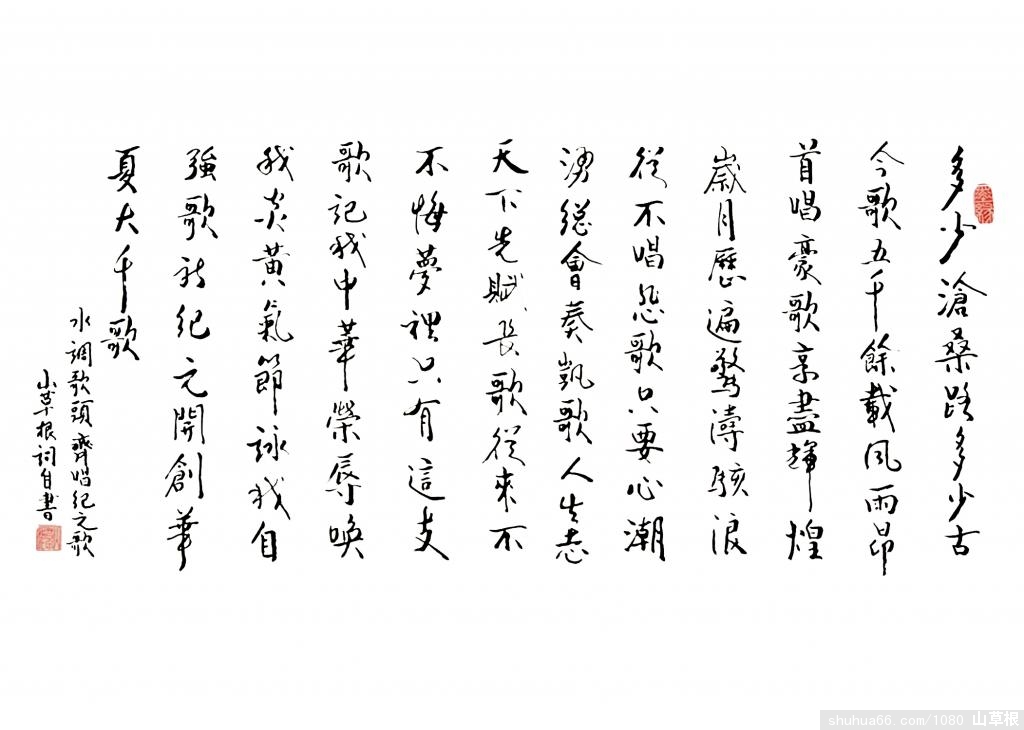 多少滄桑路多少古
今歌五千餘載風雨昂
首唱豪歌享盡輝煌
歲月歷遍驚濤駭浪
從不唱悲歌只要心潮
湧總會奏凱歌人生志
天下先賦長歌從來不
不悔夢裡只有這支
歌記我中華榮辱喚
我炎黃氣節詠我自
強歌新紀元開創華
夏大千歌
水調歌頭齊唱紀元歌
山草根詞自書
shuhua66.com/1080 山草根